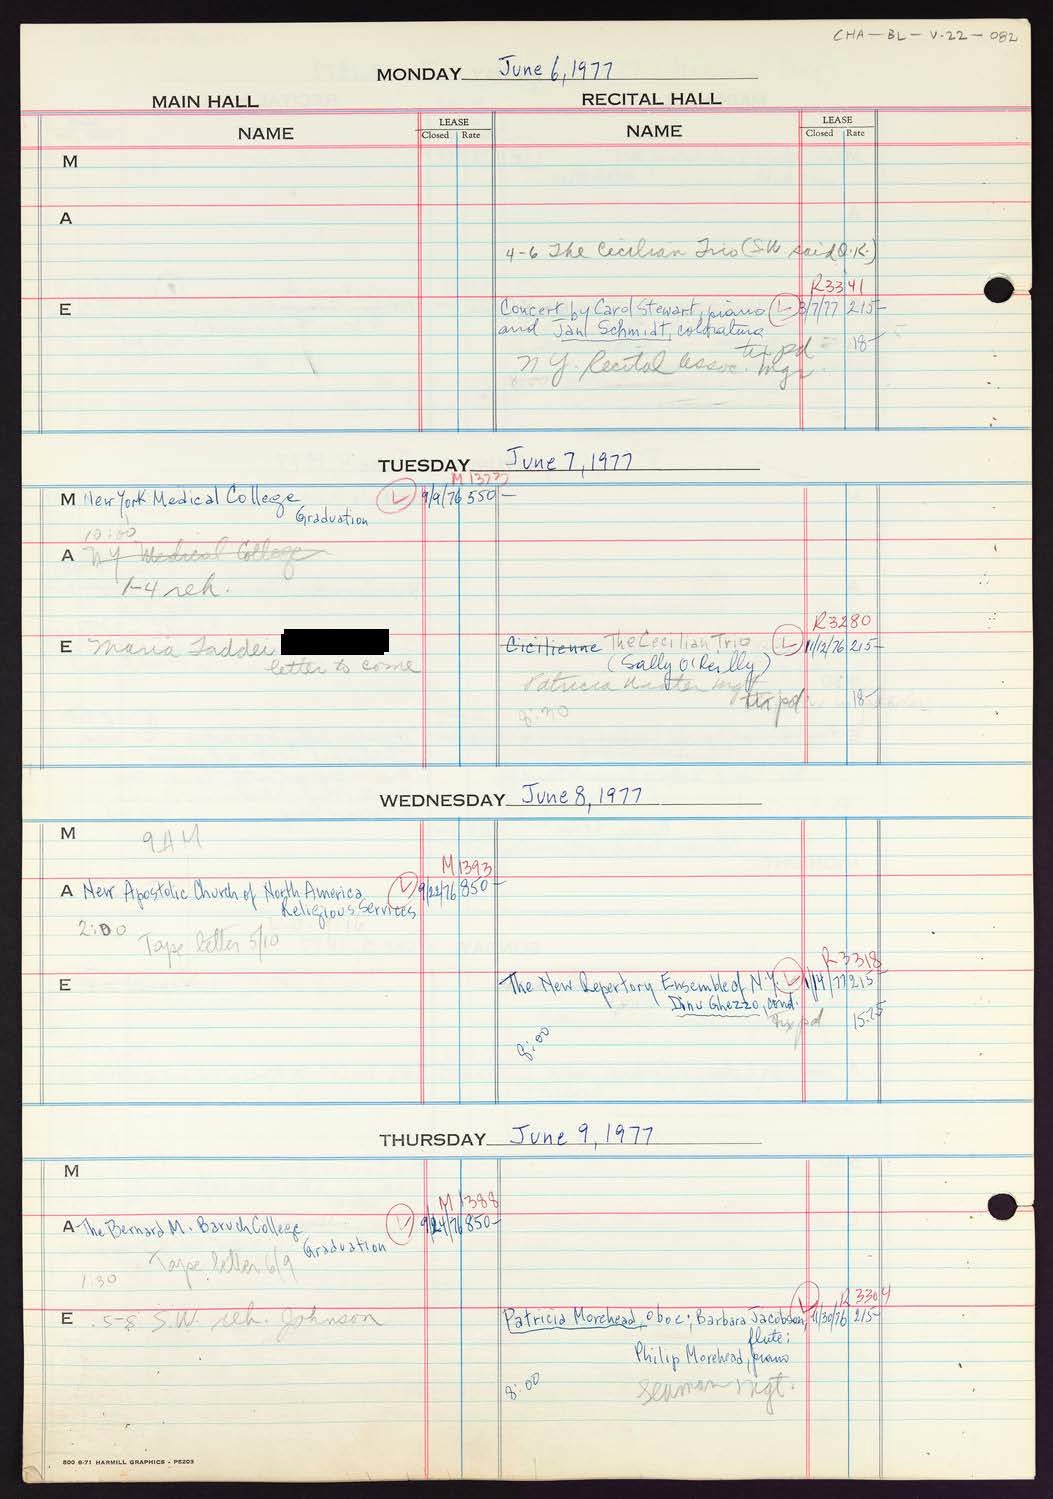 CHA-BL-V.22-082
MONDAY June 6, 1977
MAIN HALL RECITAL HALL
NAME LEASE Closed Rate NAME LEASE Closed Rate
M
A
4-6 The Cecilian Trio (S.W. said O.K.)
R3341
E Concert by Carol Stewart, piano L 3/7/77 215-
and Jan Schmidt, coloratura
tix pd 18-
N Y. Recital Assoc. Mgr.
TUESDAY June 7, 1977
M New York Medical College L 9/9/76 550-
Graduation
10:00
A NY Medical College
1-4 reh.
R3280
E Maria Taddei Cicilienne The Cecilian Trio L 11/12/76 215-
letter to come (Sally O'Reilly)
Patricia mgt
tix pd 18-
WEDNESDAY June 8, 1977
M 9 AM
M1393
A New Apostolic Church of North America L 9/22/76 850-
Religious Services
2:00
Tape letter 5/10
R3318
E The New Repertory Ensemble of N.Y. L 1/14/77 215-
Dinu Ghezzo, cond.
tix pd 15.25
8:00
THURSDAY June 9, 1977
M
M1388
A The Bernard M. Baruch College L 9/24/76 850-
Graduation
Tape letter 6/9
1:30
R3304
E 5-8 S.W. reh. Johnson Patricia Morehead, oboe; Barbara Jacobson, L 11/30/76 215-
flute;
Philip Morehead, piano
8:00 Seaman Mgt.
500 6-71 HARMILL GRAPHICS - PS203